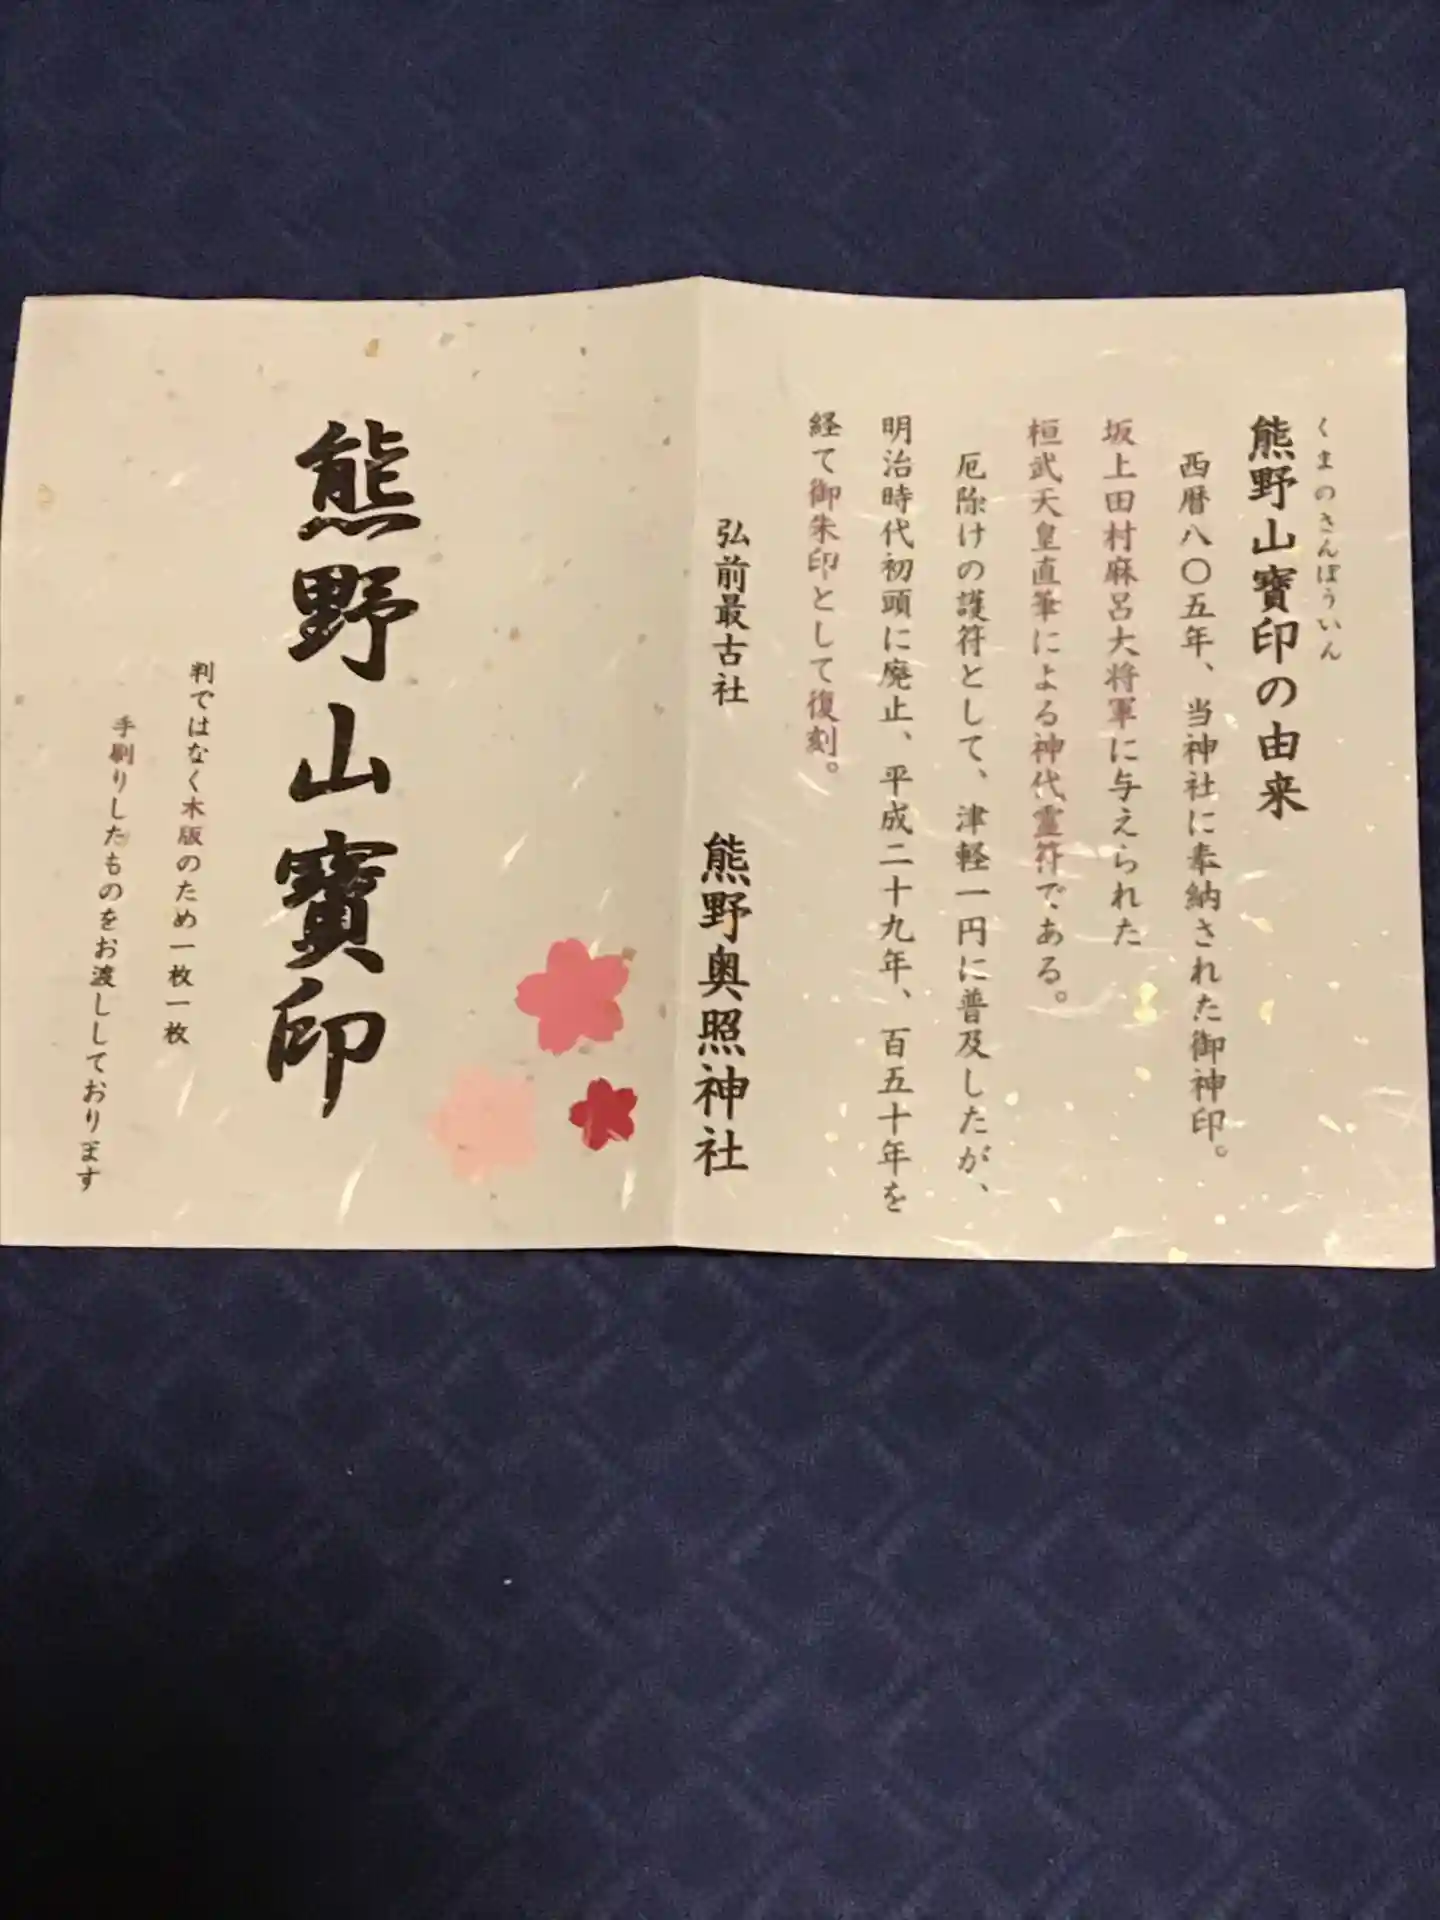 くまのさんぽういん
熊野山寳印の由来
西暦八〇五年、当神社に奉納された御神印。
坂上田村麻呂大将軍に与えられた
桓武天皇直筆による神代霊符である。
厄除けの護符として、津軽一円に普及したが、
明治時代初頭に廃止、平成二十九年、百五十年を
経て御朱印として復刻。
弘前最古社 熊野奥照神社
熊野山寳印
判ではなく木版のため一枚一枚
手刷りしたものをお渡ししております